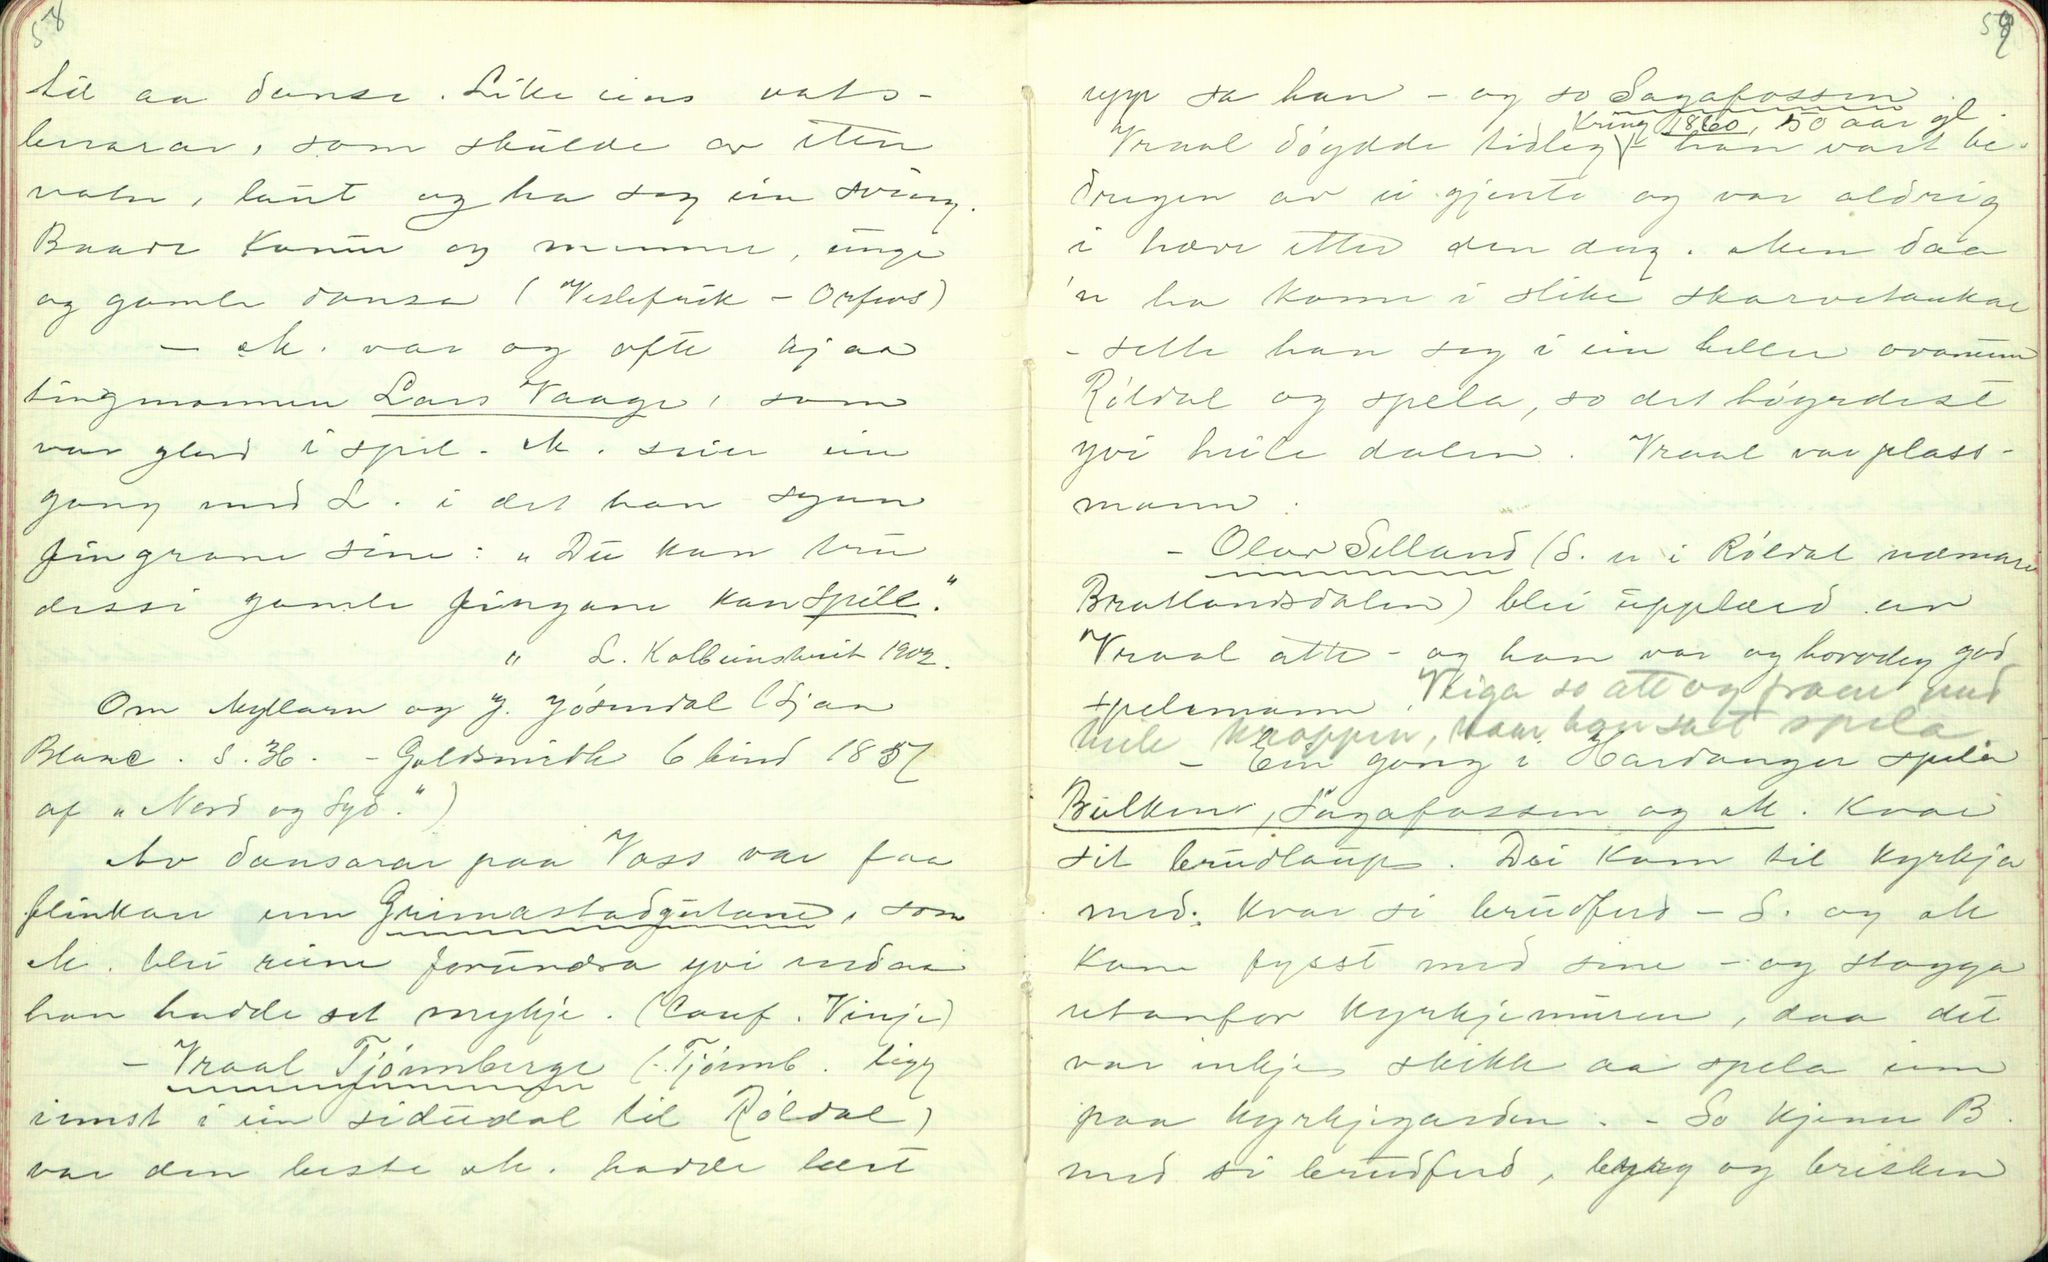 58
til aa dansa. Like eins vats-
berarar, som skulde av etter
vatn, laut og ha seg ein sving.
Baade konur og menner, unge
og gamle dansa (Veslefrik - Orfevs)
- M. var og ofte hjaa
tingmannen Lars Vaage, som
var glad i spil. M. seier ein
gong med L. i det han synn
fingrane sine: "Du kan tru
dessi gamle fingane kan spill."
" L. Kolbeinstveit 1902.
Om Myllarn og J. Jösendal (Sjaa
Blanc. S. 36. - Goldsmidth 6 bind 1857
af "Nord og Syd.")
Av dansarar paa Voss var faa
flinkar um Grimastadgutane, som
M. blei reine forundra yvi endaa
han hadde set mykje. (Conf. Vinje)
- Vraal Tjönnberge (Tjönnb. ligg
inst i ein sidedal til Röldal)
var den beste M. hadde lært
59
upp sa han - og so Sagafossen.
kring 1860, 50 aar gl.
Vraal döydde tidleg - han vart be-
dregen av ei gjente og var aldrig
i hæve etter den dag. Men daa
'n ha kome i slike skarvetankar
- sette han seg i ein heller ovanum
Röldal og spela, so det höyrdest
yvi heile dalen. Vraal var plass-
mann.
- Olav Selland (S. er i Röldal nedmed
Bratlandsdalen) blei upplærd av
Vraal atte - og han var og hovudeg god
spelemann. Veiga so att og fram med
heile kroppen, naar han sat spela.
- Ein gong i Hardanger spela
Bulken, Sagafossen og M. kvar
sit brudlaup. Dei kom til kyrkja
med kvar si brudferd - S. og M
kom fysst med sine - og stogga
utanfor kyrkjemuren, daa det
var inkje skikk aa spela inn
paa kyrkjegarden. - So kjem B.
med si brudferd, byrg og brisken